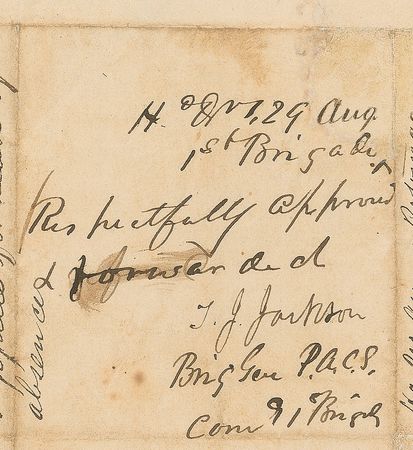 Hd Qrs, 29 Aug.
1st Brigade,
Respectfully approved
& forwarded
T. J. Jackson
Brig Gen P.A.C.S.
Comg 1st Brigade
absence